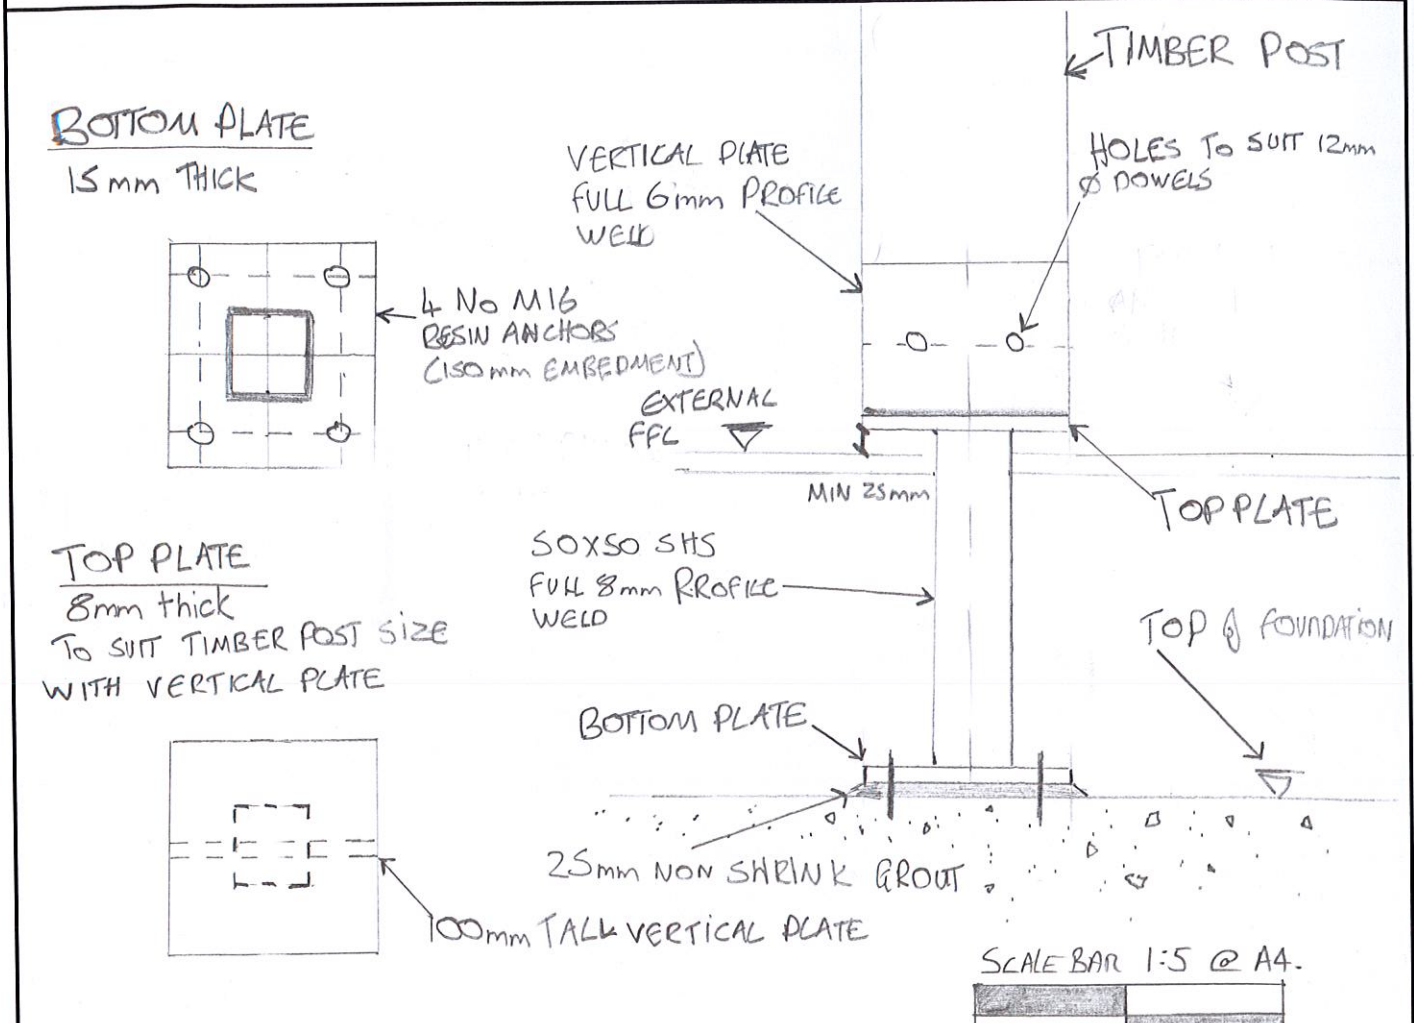 BOTTOM PLATE
15mm THICK
4 No M16
RESIN ANCHORS
(150mm EMBEDMENT)
TOP PLATE
8mm thick
TO SUIT TIMBER POST SIZE
WITH VERTICAL PLATE
100mm TALL VERTICAL PLATE
TIMBER POST
VERTICAL PLATE
FULL 6mm PROFILE
WELD
HOLES TO SUIT 12mm
Ø DOWELS
EXTERNAL
FFL
MIN 25mm
TOP PLATE
50X50 SHS
FULL 8mm PROFILE
WELD
TOP of FOUNDATION
BOTTOM PLATE
25mm NON SHRINK GROUT
SCALE BAR 1:5 @ A4.